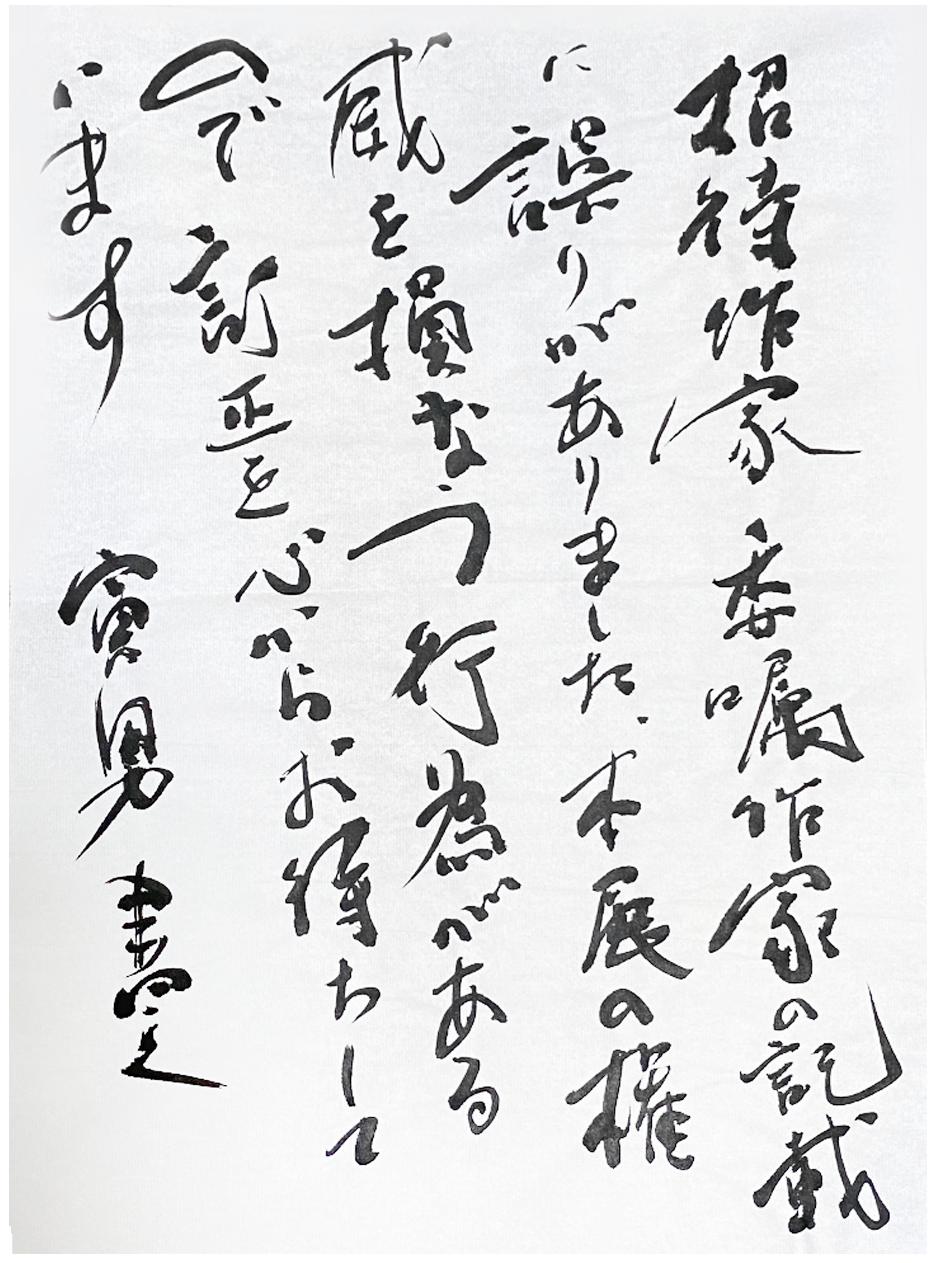 招待作家委嘱作家の記載
に誤りがありました、本展の権
威を損なう行為がある
ので訂正を心からお待ちして
います 寅男書